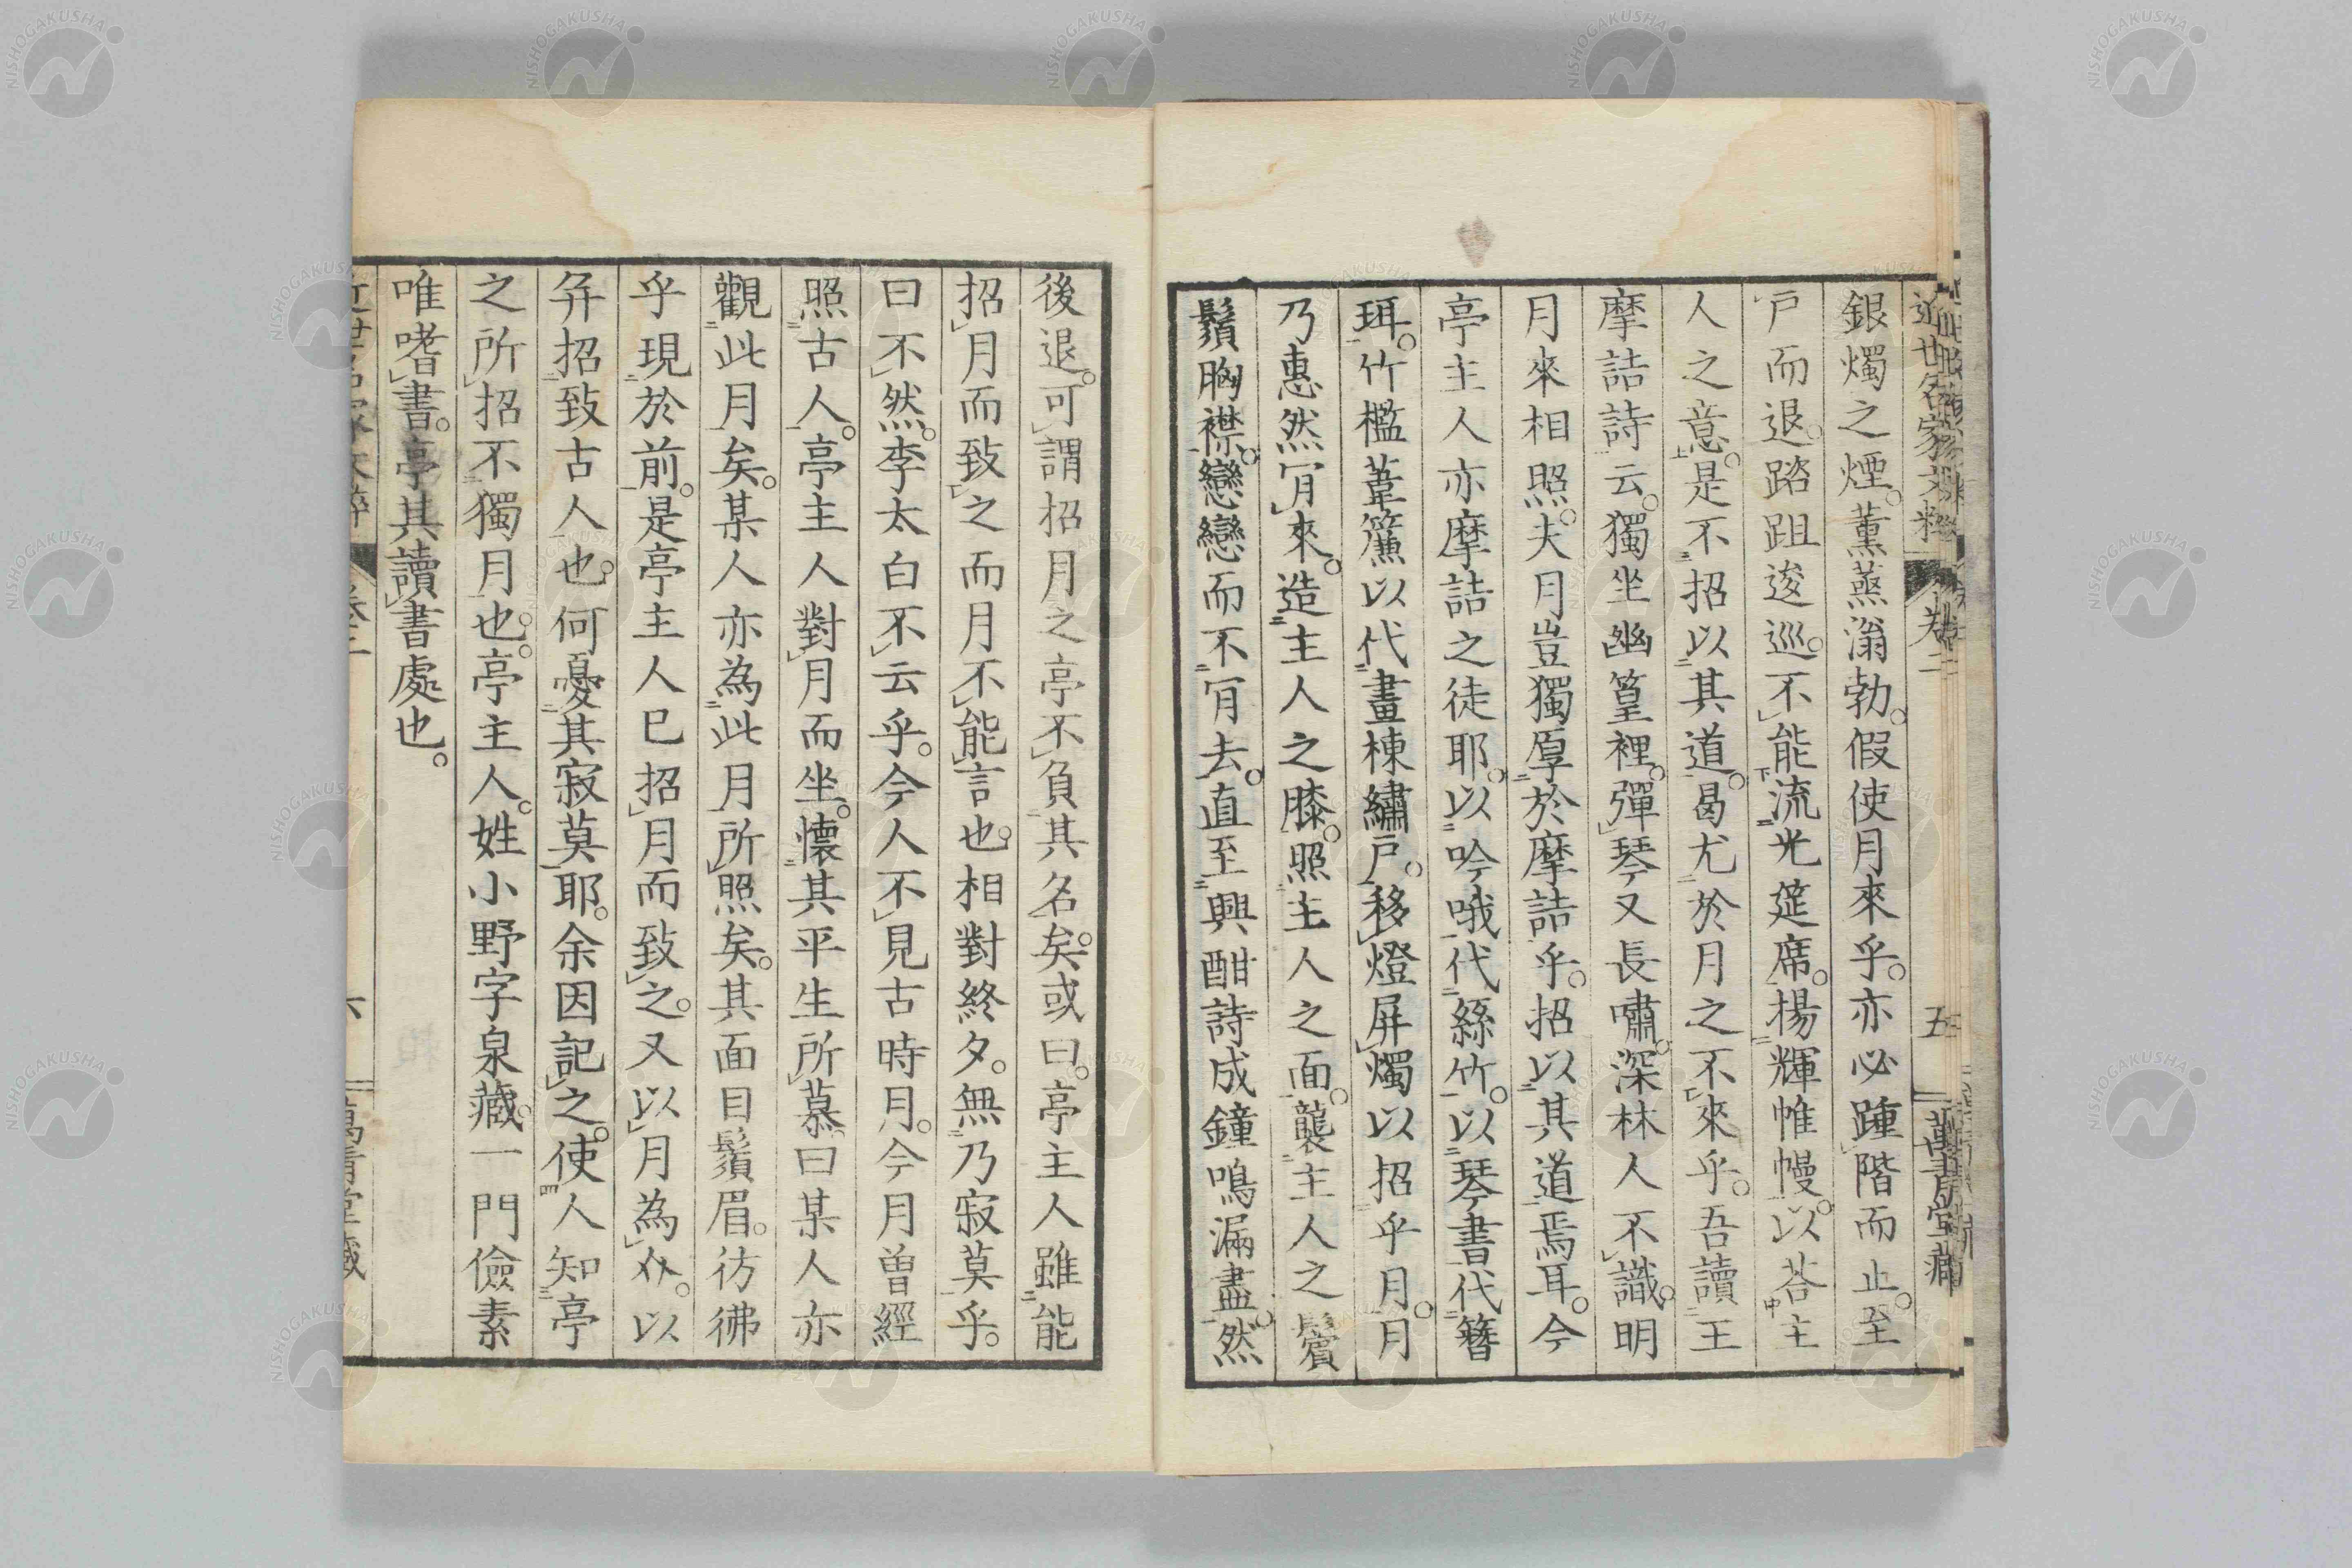 近世名家文粹 卷二 五 萬青堂藏
銀燭之煙。薰蒸滃勃。假使月來乎。亦必踵階而止。至
戸而退。踏跙逡巡。不能流光筵席。揚輝帷幔。以荅主
人之意。是不招以其道。曷尤於月之不來乎。吾讀王
摩詰詩云。獨坐幽篁裡。彈琴又長嘯。深林人不識。明
月來相照。夫月豈獨厚於摩詰乎。招以其道焉耳。今
亭主人亦摩詰之徒耶。以吟哦代絲竹。以琴書代簪
珥。竹檻葦簾以代畫棟繡戸。移燈屏燭以招乎月。月
乃惠然肎來。造主人之膝。照主人之面。襲主人之鬢
鬚胸襟。戀戀而不肎去。直至興酣詩成鐘鳴漏盡。然
後退。可謂招月之亭不負其名矣。或曰。亭主人雖能
招月而致之。而月不能言也。相對終夕。無乃寂莫乎。
曰不然。李太白不云乎。今人不見古時月。今月曽經
照古人。亭主人對月而坐。懷其平生所慕曰某人亦
觀此月矣。某人亦為此月所照矣。其面目鬚眉。彷彿
乎現於前。是亭主人已招月而致之。又以月為介。以
并招致古人也。何憂其寂莫耶。余因記之。使人知亭
之所招不獨月也。亭主人。姓小野字泉藏。一門儉素
唯嗜書。亭其讀書處也。
近世名家文粹 卷二 六 萬青堂藏